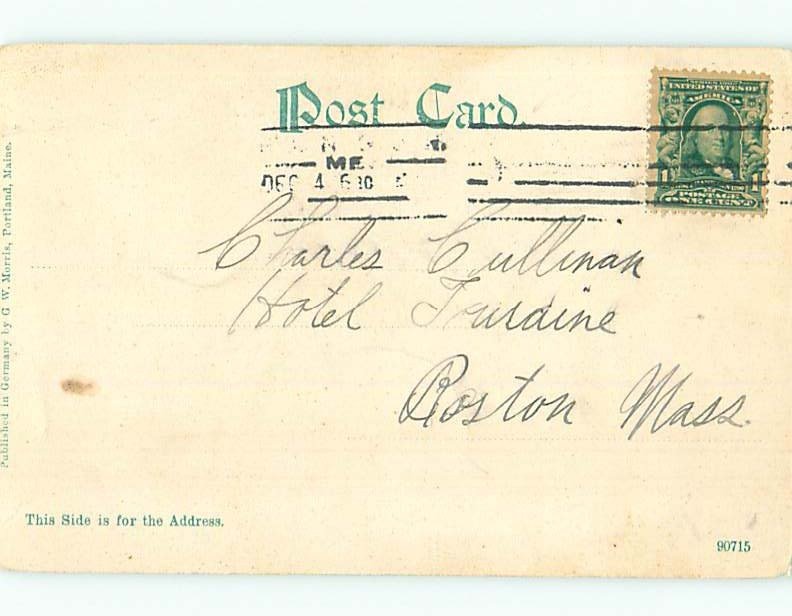 Post Card.
SERIES 1902
UNITED STATES OF
AMERICA
ME.
DEC 4 6 30
1 1
POSTAGE
Charles Cullinan
Hotel Touraine
Boston Mass.
Published in Germany by G. W. Morris, Portland, Maine.
This Side is for the Address.
90715